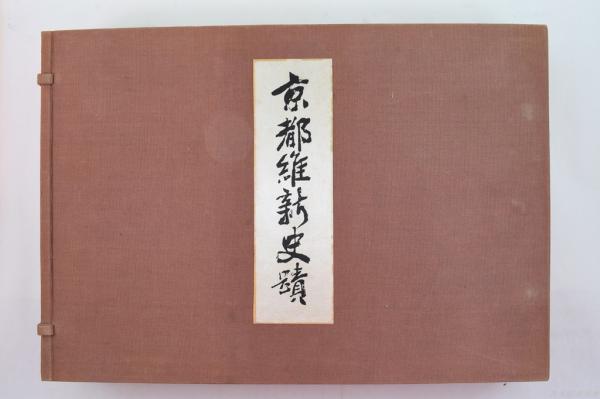 京都維新史蹟